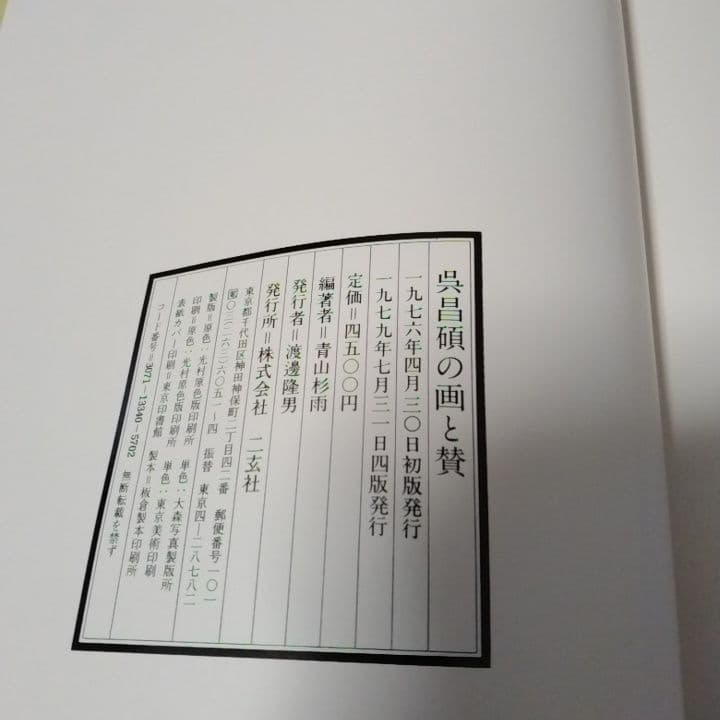 呉昌碩の画と賛
一九七六年四月三〇日初版発行
一九七九年七月三一日四版発行
定価＝四五〇〇円
編著者＝青山杉雨
発行者＝渡邊隆男
発行所＝株式会社 二玄社
東京都千代田区神田神保町二丁目四二番 郵便番号一〇一
電〇三(二六三)六〇五一〜四 振替 東京四—二八七八二
製版＝原色：光村原色版印刷所 単色：大森写真製版所
印刷＝原色：光村原色版印刷所 単色：東京美術印刷
表紙カバー印刷＝東京印書館 製本＝板倉製本印刷所
コード番号＝3071—13340—5702 無断転載を禁ず